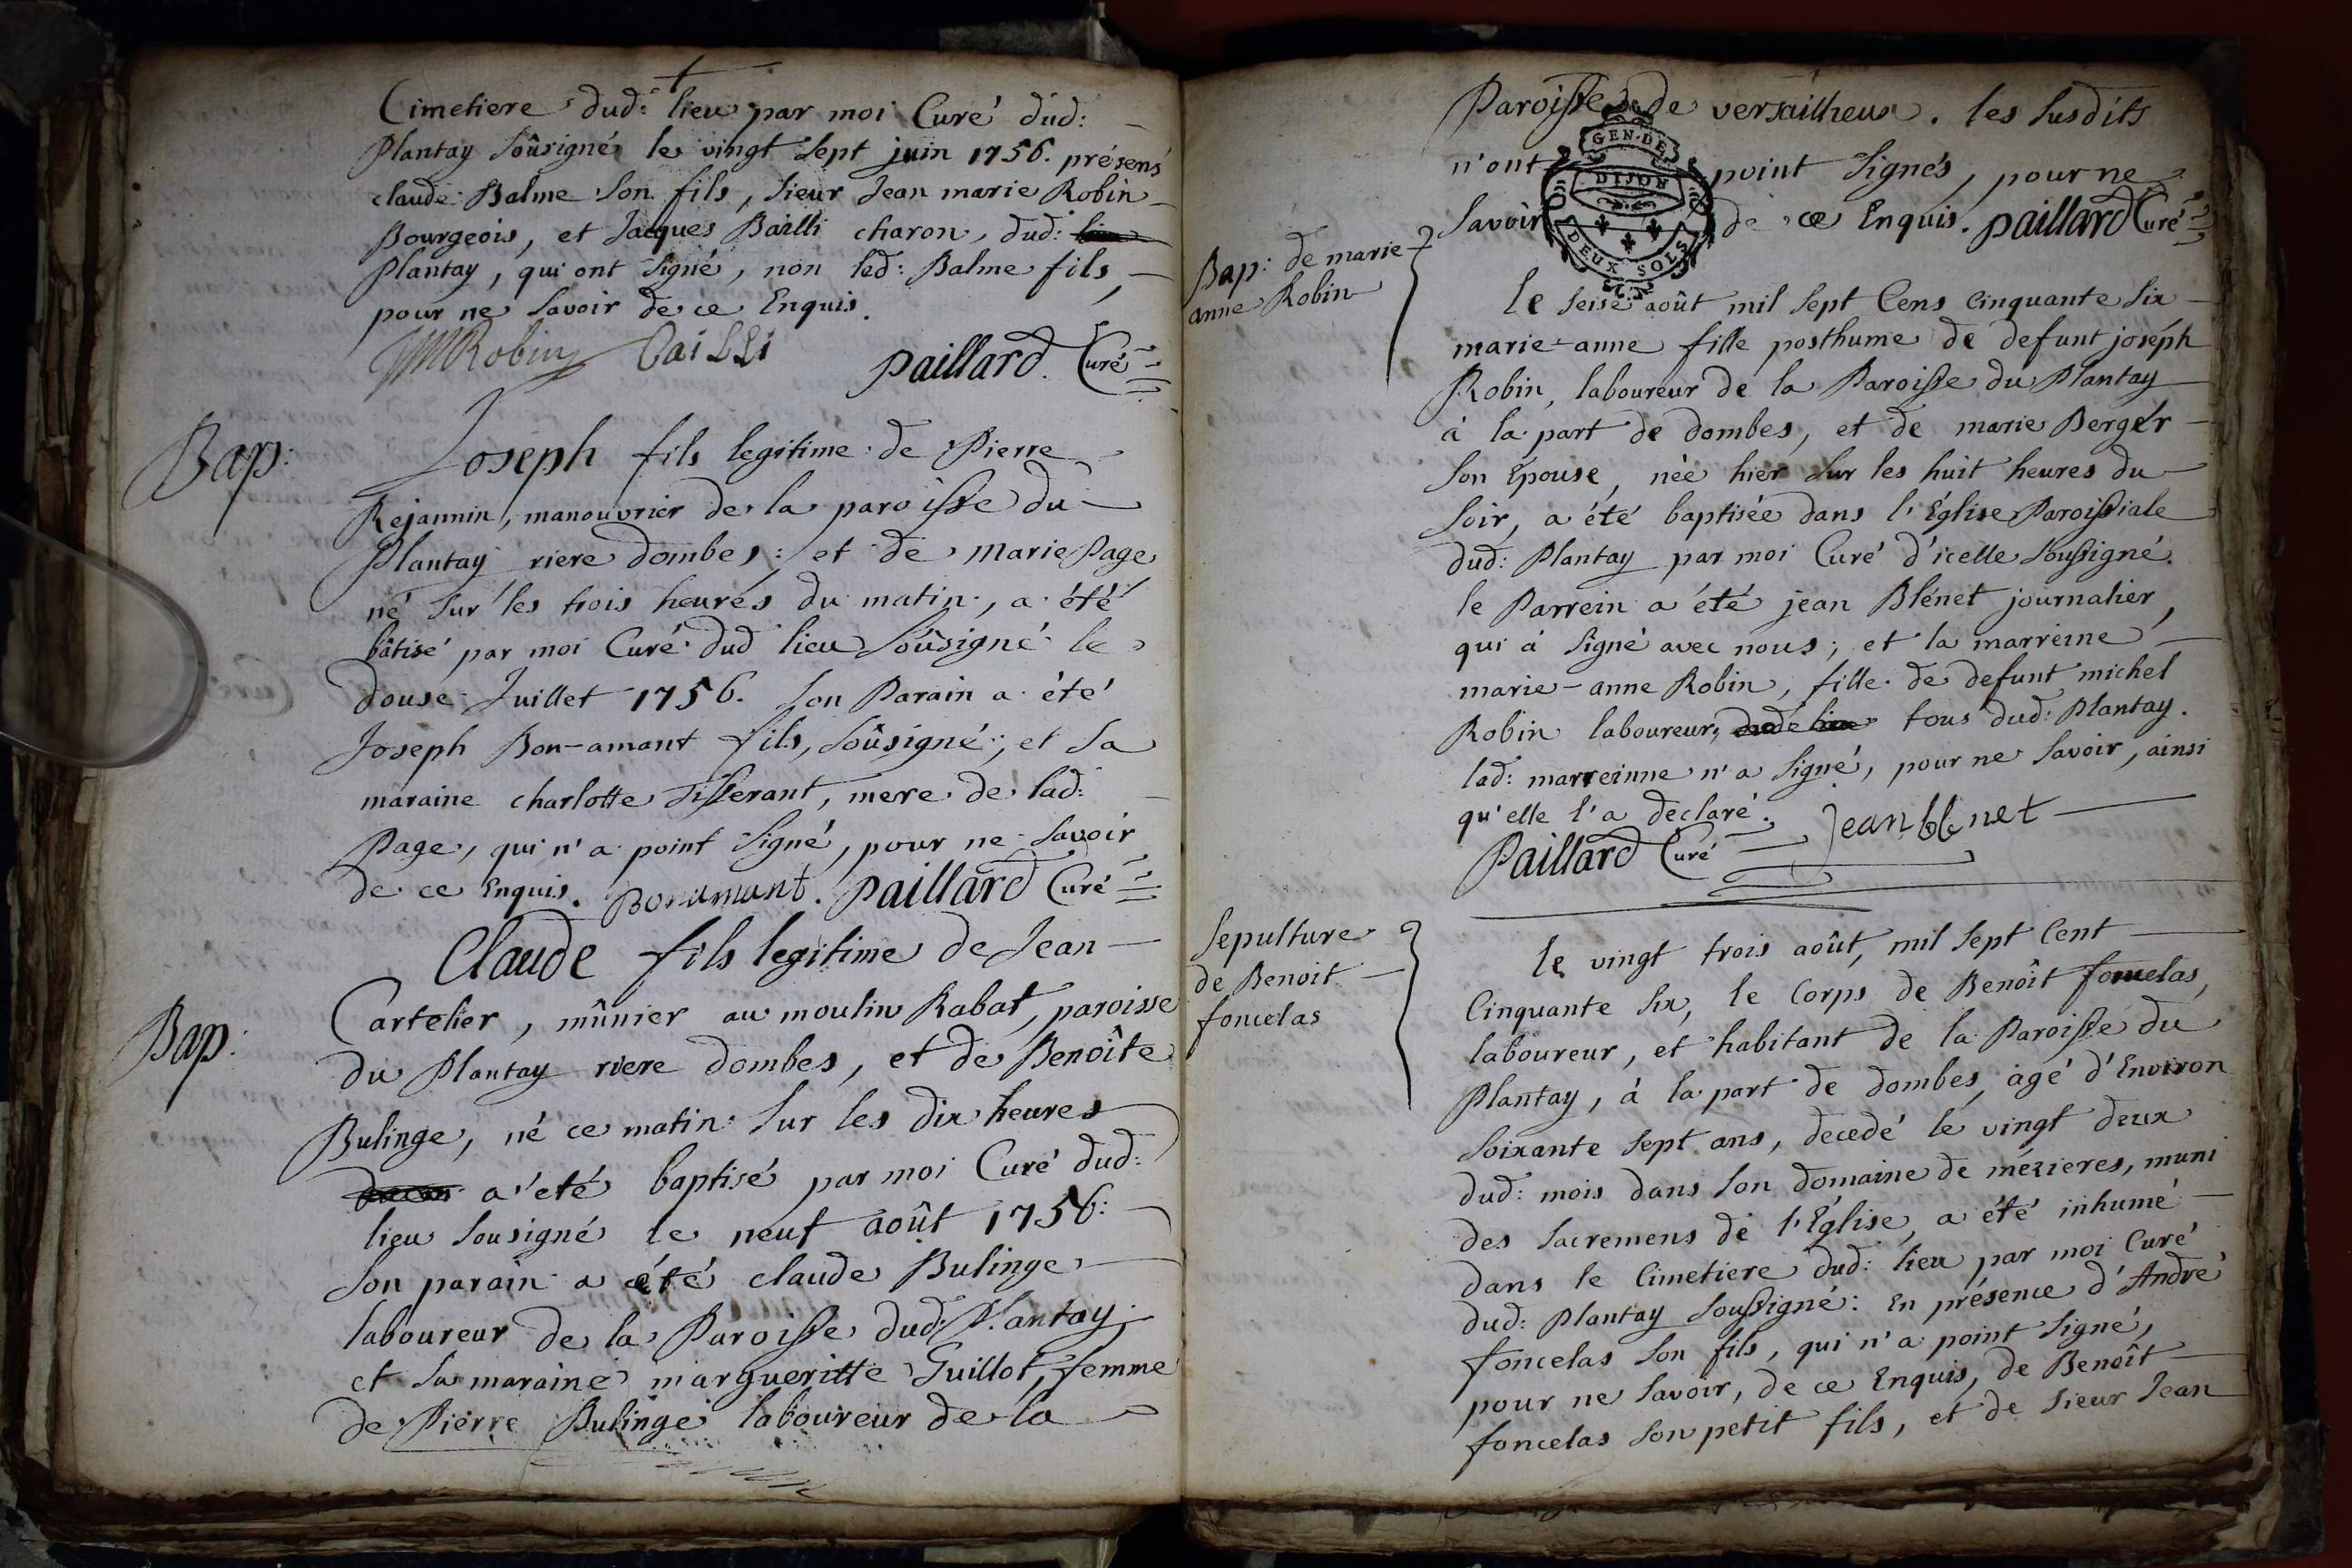 Cimetiere dud: lieu par moi Curé dud:
Plantay soûsigné le vingt sept juin 1756. présens
claude Balme son fils, sieur Jean marie Robin
Bourgeois, et Jacques Bailli charon, dud:
Plantay, qui ont signé, non led: Balme fils,
pour ne savoir de ce Enquis.
JMRobin Bailli paillard Curé
Bap:
Joseph fils legitime de Pierre
Rejannin, manouvrier de la paroisse du
Plantay riere dombes: et de Marie Page
né sur les trois heures du matin, a été
bâtisé par moi Curé dud lieu soûsigné le
douse Juillet 1756. son Parain a été
Joseph Bon-amant fils, soûsigné, et sa
maraine charlotte Tisserant, mere de lad:
Page, qui n'a point signé, pour ne savoir
de ce Enquis. Bonamant. paillard Curé
Claude fils legitime de Jean
Bap:
Cartelier, mûnier au moulin Rabat, paroisse
du Plantay riere dombes, et de Benoîte
Bulinge, né ce matin sur les dix heures
a été baptisé par moi Curé dud:
lieu sousigné le neuf août 1756:
son parain a été claude Bulinge
laboureur de la Paroisse dud: Plantay;
et sa maraine margueritte Guillot, femme
de Pierre Bulinge laboureur de la
Paroisse de versailheux. les susdits
n'ont point signés, pour ne
savoir de ce Enquis. paillard Curé
GEN·DE
DIJON
DEUX SOLS
Bap: de marie
anne Robin
le seise août mil sept Cens Cinquante six
marie-anne fille posthume de defunt joséph
Robin, laboureur de la Paroisse du Plantay
à la part de dombes, et de marie Bergér
son Epouse, née hier sur les huit heures du
soir, a été baptisée dans l'Église Paroissiale
dud: Plantay par moi Curé d'icelle soussigné.
le Parrein a été jean Blénet journalier,
qui à signé avec nous; et la marreine
marie-anne Robin, fille de defunt michel
Robin laboureur, dud: lieu tous dud: Plantay.
lad: marreinne n'a signé, pour ne savoir, ainsi
qu'elle l'a declaré.
Paillard Curé Jean blenet
Sepulture
de Benoit
foncelas
le vingt trois août, mil sept Cent
Cinquante six, le Corps de Benoît foncelas,
laboureur, et habitant de la Paroisse du
Plantay, à la part de dombes, agé d'Environ
soixante sept ans, decedé le vingt deux
dud: mois dans son domaine de mézieres, muni
des sacremens de l'Église, a été inhumé
dans le Cimetiere dud: lieu par moi Curé
dud: Plantay soussigné: En présence d'André
foncelas son fils, qui n'a point signé,
pour ne savoir, de ce Enquis, de Benoît
foncelas son petit fils, et de sieur Jean